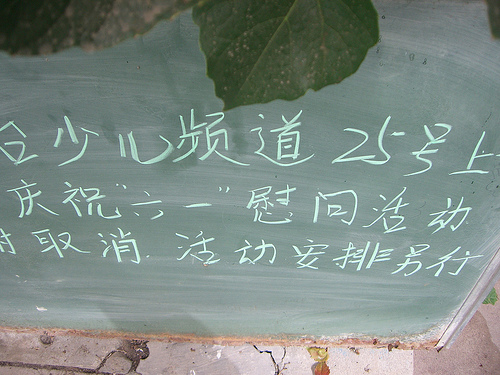 台少儿频道25号上
庆祝"六一"慰问活动
时取消.活动安排另行